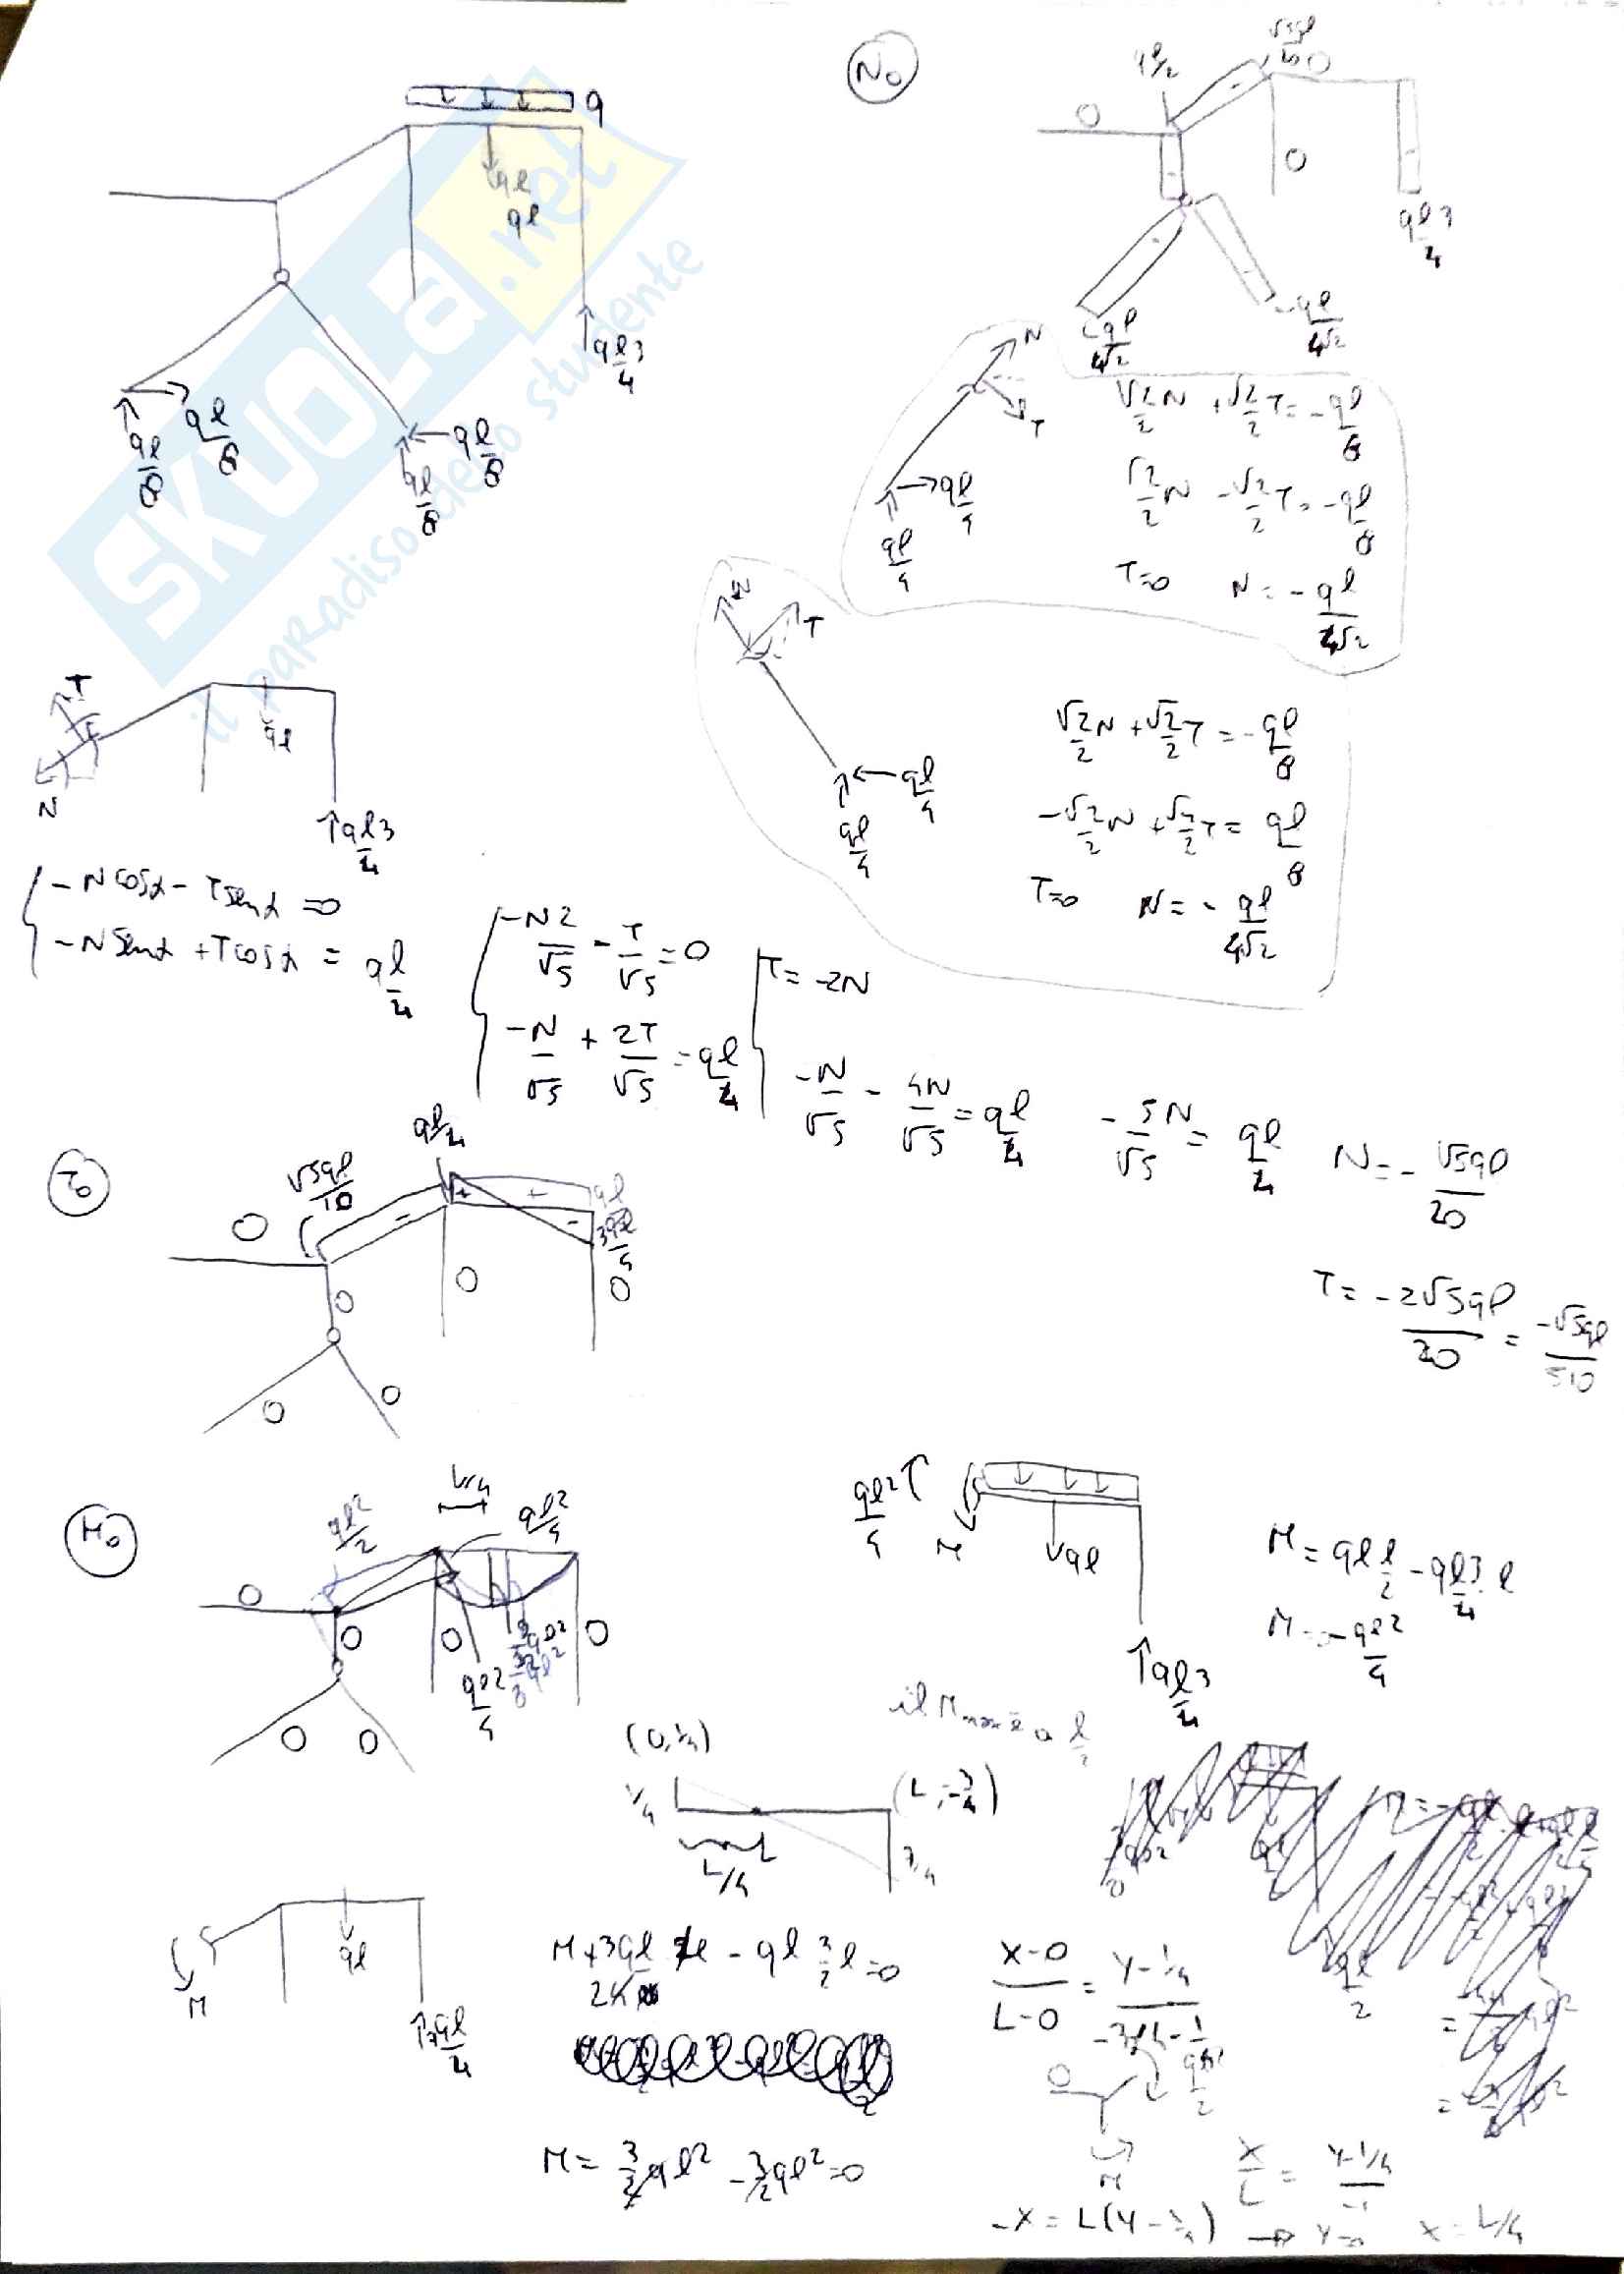 q
ql
ql
ql 3/4
ql/8
ql/8
ql/8
ql/8
SKUOLA.net
il paradiso dello studente
N₀
0
ql/2
0
0
ql 3/4
-ql/4√2
-ql/4√2
N
T
ql/4
ql/4
√2/2 N + √2/2 T = -ql/8
√2/2 N - √2/2 T = -ql/8
T=0 N = -ql/4√2
N
T
ql/4
ql/4
√2/2 N + √2/2 T = -ql/8
-√2/2 N + √2/2 T = ql/8
T=0 N = -ql/4√2
T
N
ql
ql 3/4
-N cosα - T senα = 0
-N senα + T cosα = ql/4
-N2/√5 - T/√5 = 0
-N/√5 + 2T/√5 = ql/4
T = -2N
-N/√5 - 4N/√5 = ql/4
-5N/√5 = ql/4
N = -√5ql/20
T = -2√5ql/20 = -√5ql/10
T₀
√5ql/10
ql/4
+
+
-
-
ql
3ql/4
0
0
0
0
0
0
M₀
ql²/2
L/4
ql²/4
0
0
0
0
0
0
ql²/4
ql²/4
M
ql
ql 3/4
M = ql l/2 - ql 3/4 l
M = -ql²/4
il Mmax è a l/2
(0,1/4)
1/4
(L,-3/4)
3/4
L/4
M
ql
3ql/4
M + 3ql/2 l - ql 3/2 l = 0
M = 3/2 ql² - 3/2 ql² = 0
X-0/L-0 = Y-1/4/-3/4-1/4
0
M
X/L = Y-1/4/-1
-X = L(Y-1/4) → Y=0 X = L/4